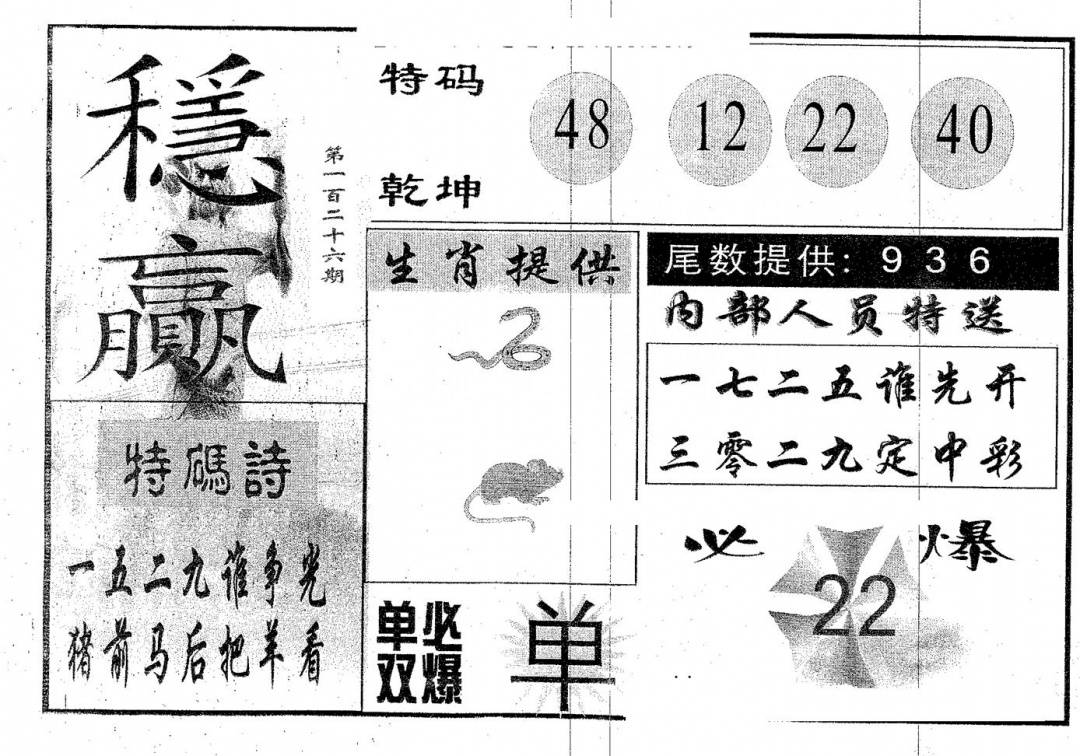 穩贏
第一百二十六期
特码诗
一五二九谁争光
猪前马后把羊看
特码
乾坤
48 12 22 40
生肖提供
单双
必爆
单
尾数提供: 9 3 6
内部人员特送
一七二五谁先开
三零二九定中彩
必爆
22